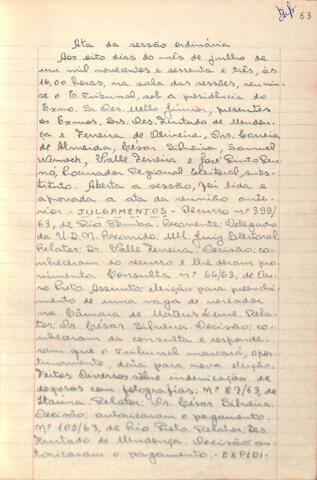 63
Ata da sessão ordinária
Aos oito dias do mês de julho de
um mil novecentos e sessenta e três, às
16,00 horas, na sala das sessões, reuniu-
se o Tribunal, sob a presidência do
Exmo. Sr. Des. Mello Júnior, presentes
os Exmos. Srs. Des. Furtado de Mendon-
ça e Ferreira de Oliveira, Drs. Correia
de Almeida, César Silveira, Samuel
Werneck, Valle Ferreira e José Pinto Ren-
nó, Procurador Regional Eleitoral, subs-
tituto. Aberta a sessão, foi lida e
aprovada a ata da reunião ante-
rior. - JULGAMENTOS - Recurso nº 399/
63, de Rio Pomba. Recorrente: Delegado
da U.D.N. Recorrido, MM. Juiz Eleitoral
Relator: Dr. Valle Ferreira. Decisão: co-
nheceram do recurso e lhe deram pro-
vimento. Consulta nº 66/63, de Ou-
ro Preto. Assunto: eleição para preenchi-
mento de uma vaga de vereador
na Câmara de Mateus Leme. Rela-
tor: Dr. César Silveira. Decisão: co-
nheceram da consulta e responde-
ram que o Tribunal marcará, opor-
tunamente, data para nova eleição.
Feitos Diversos sôbre indenização de
despesas com fotografias: Nº 87/63, de
Itaúna Relator: Dr. César Silveira.
Decisão: autorizaram o pagamento.
Nº 105/63, de Rio Preto Relator: Des.
Furtado de Mendonça. Decisão: au-
torizaram o pagamento. - EXPEDI-